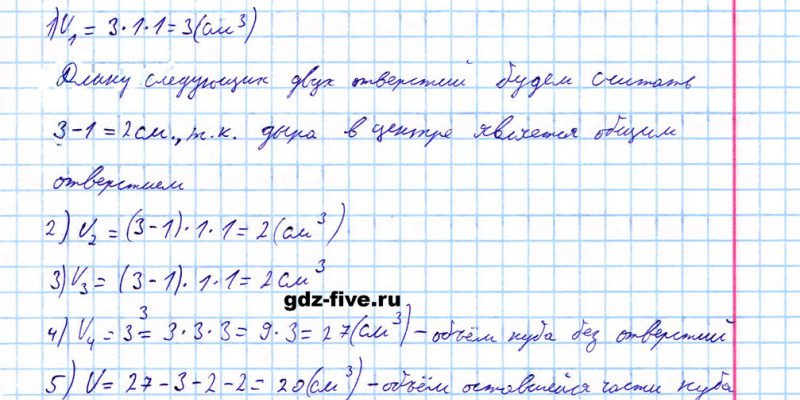 1) V₁ = 3·1·1 = 3 (см³)
Длину следующих двух отверстий будем считать
3-1 = 2 см., т.к. дыра в центре является общим
отверстием
2) V₂ = (3-1)·1·1 = 2 (см³)
3) V₃ = (3-1)·1·1 = 2 см³
gdz-five.ru
4) V₄ = 3³ = 3·3·3 = 9·3 = 27 (см³) – объём куба без отверстий
5) V = 27-3-2-2 = 20 (см³) – объём оставшейся части куба